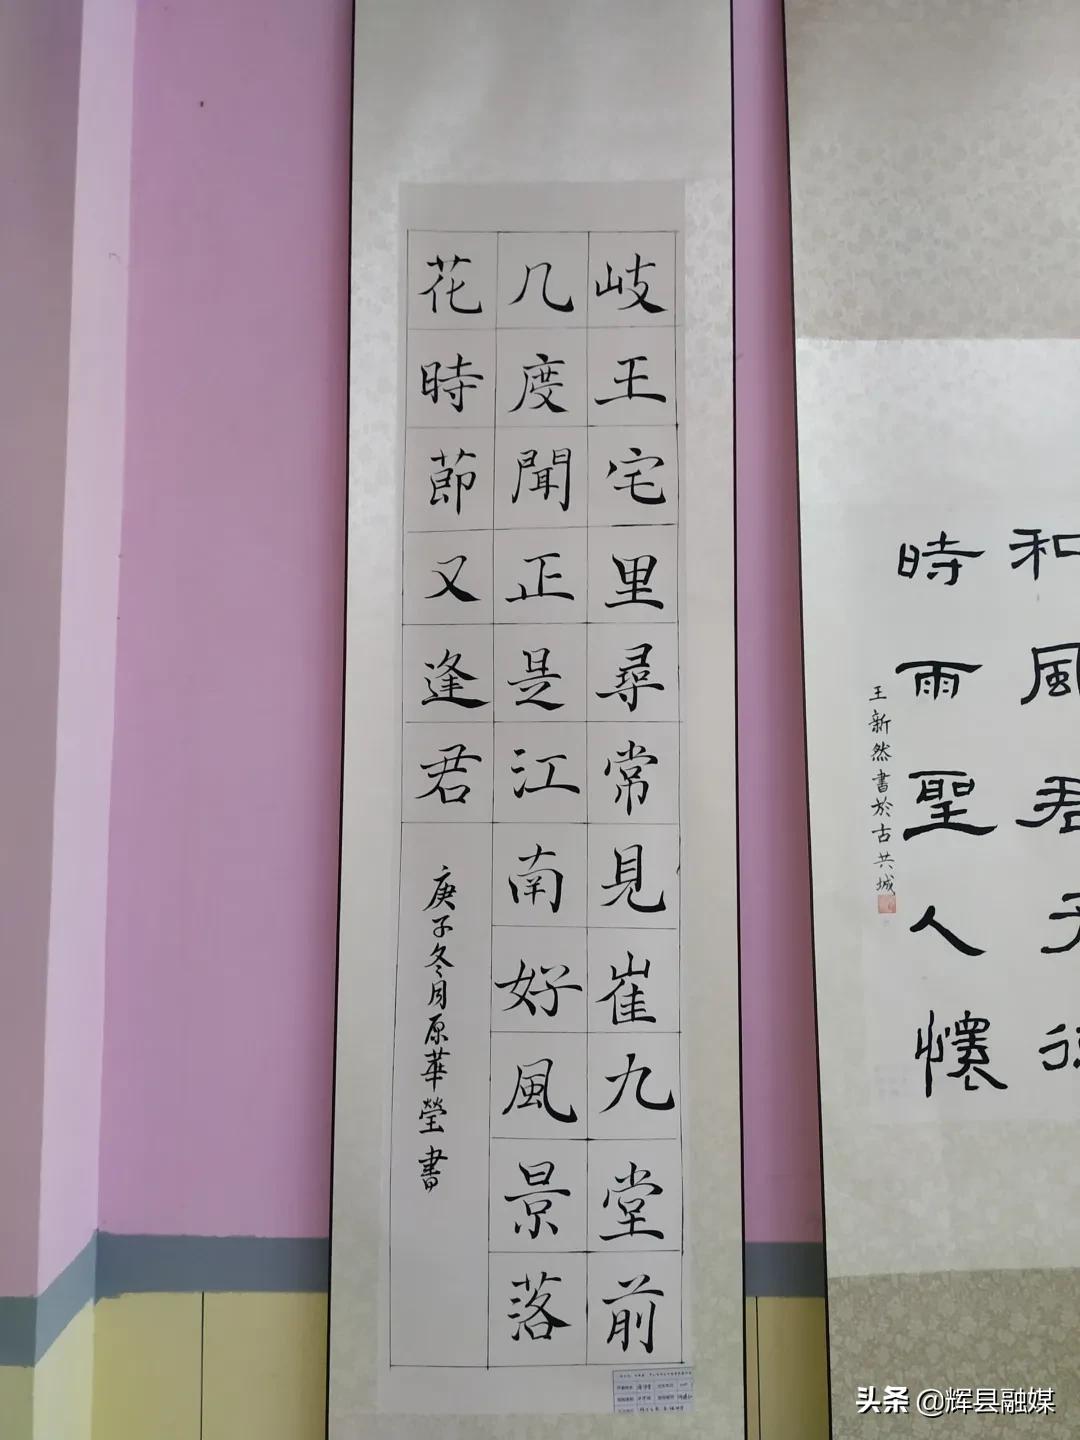 岐王宅里尋常見崔九堂前
几度聞正是江南好風景落
花時節又逢君
庚子冬月原華瑩書
和風君子
時雨聖人懷
王新然書於古共城
头条 @辉县融媒